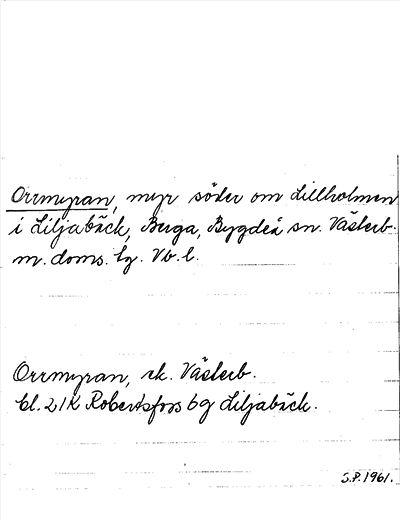 Orrmyran, myr söder om Lillholmen
i Liljabäck, Berga, Bygdeå sn. Västerb.
m. doms. lg. Vb. l.
Orrmyran, ek. Västerb.
bl. 21K Robertsfors 6g Liljabäck.
S.P. 1961.